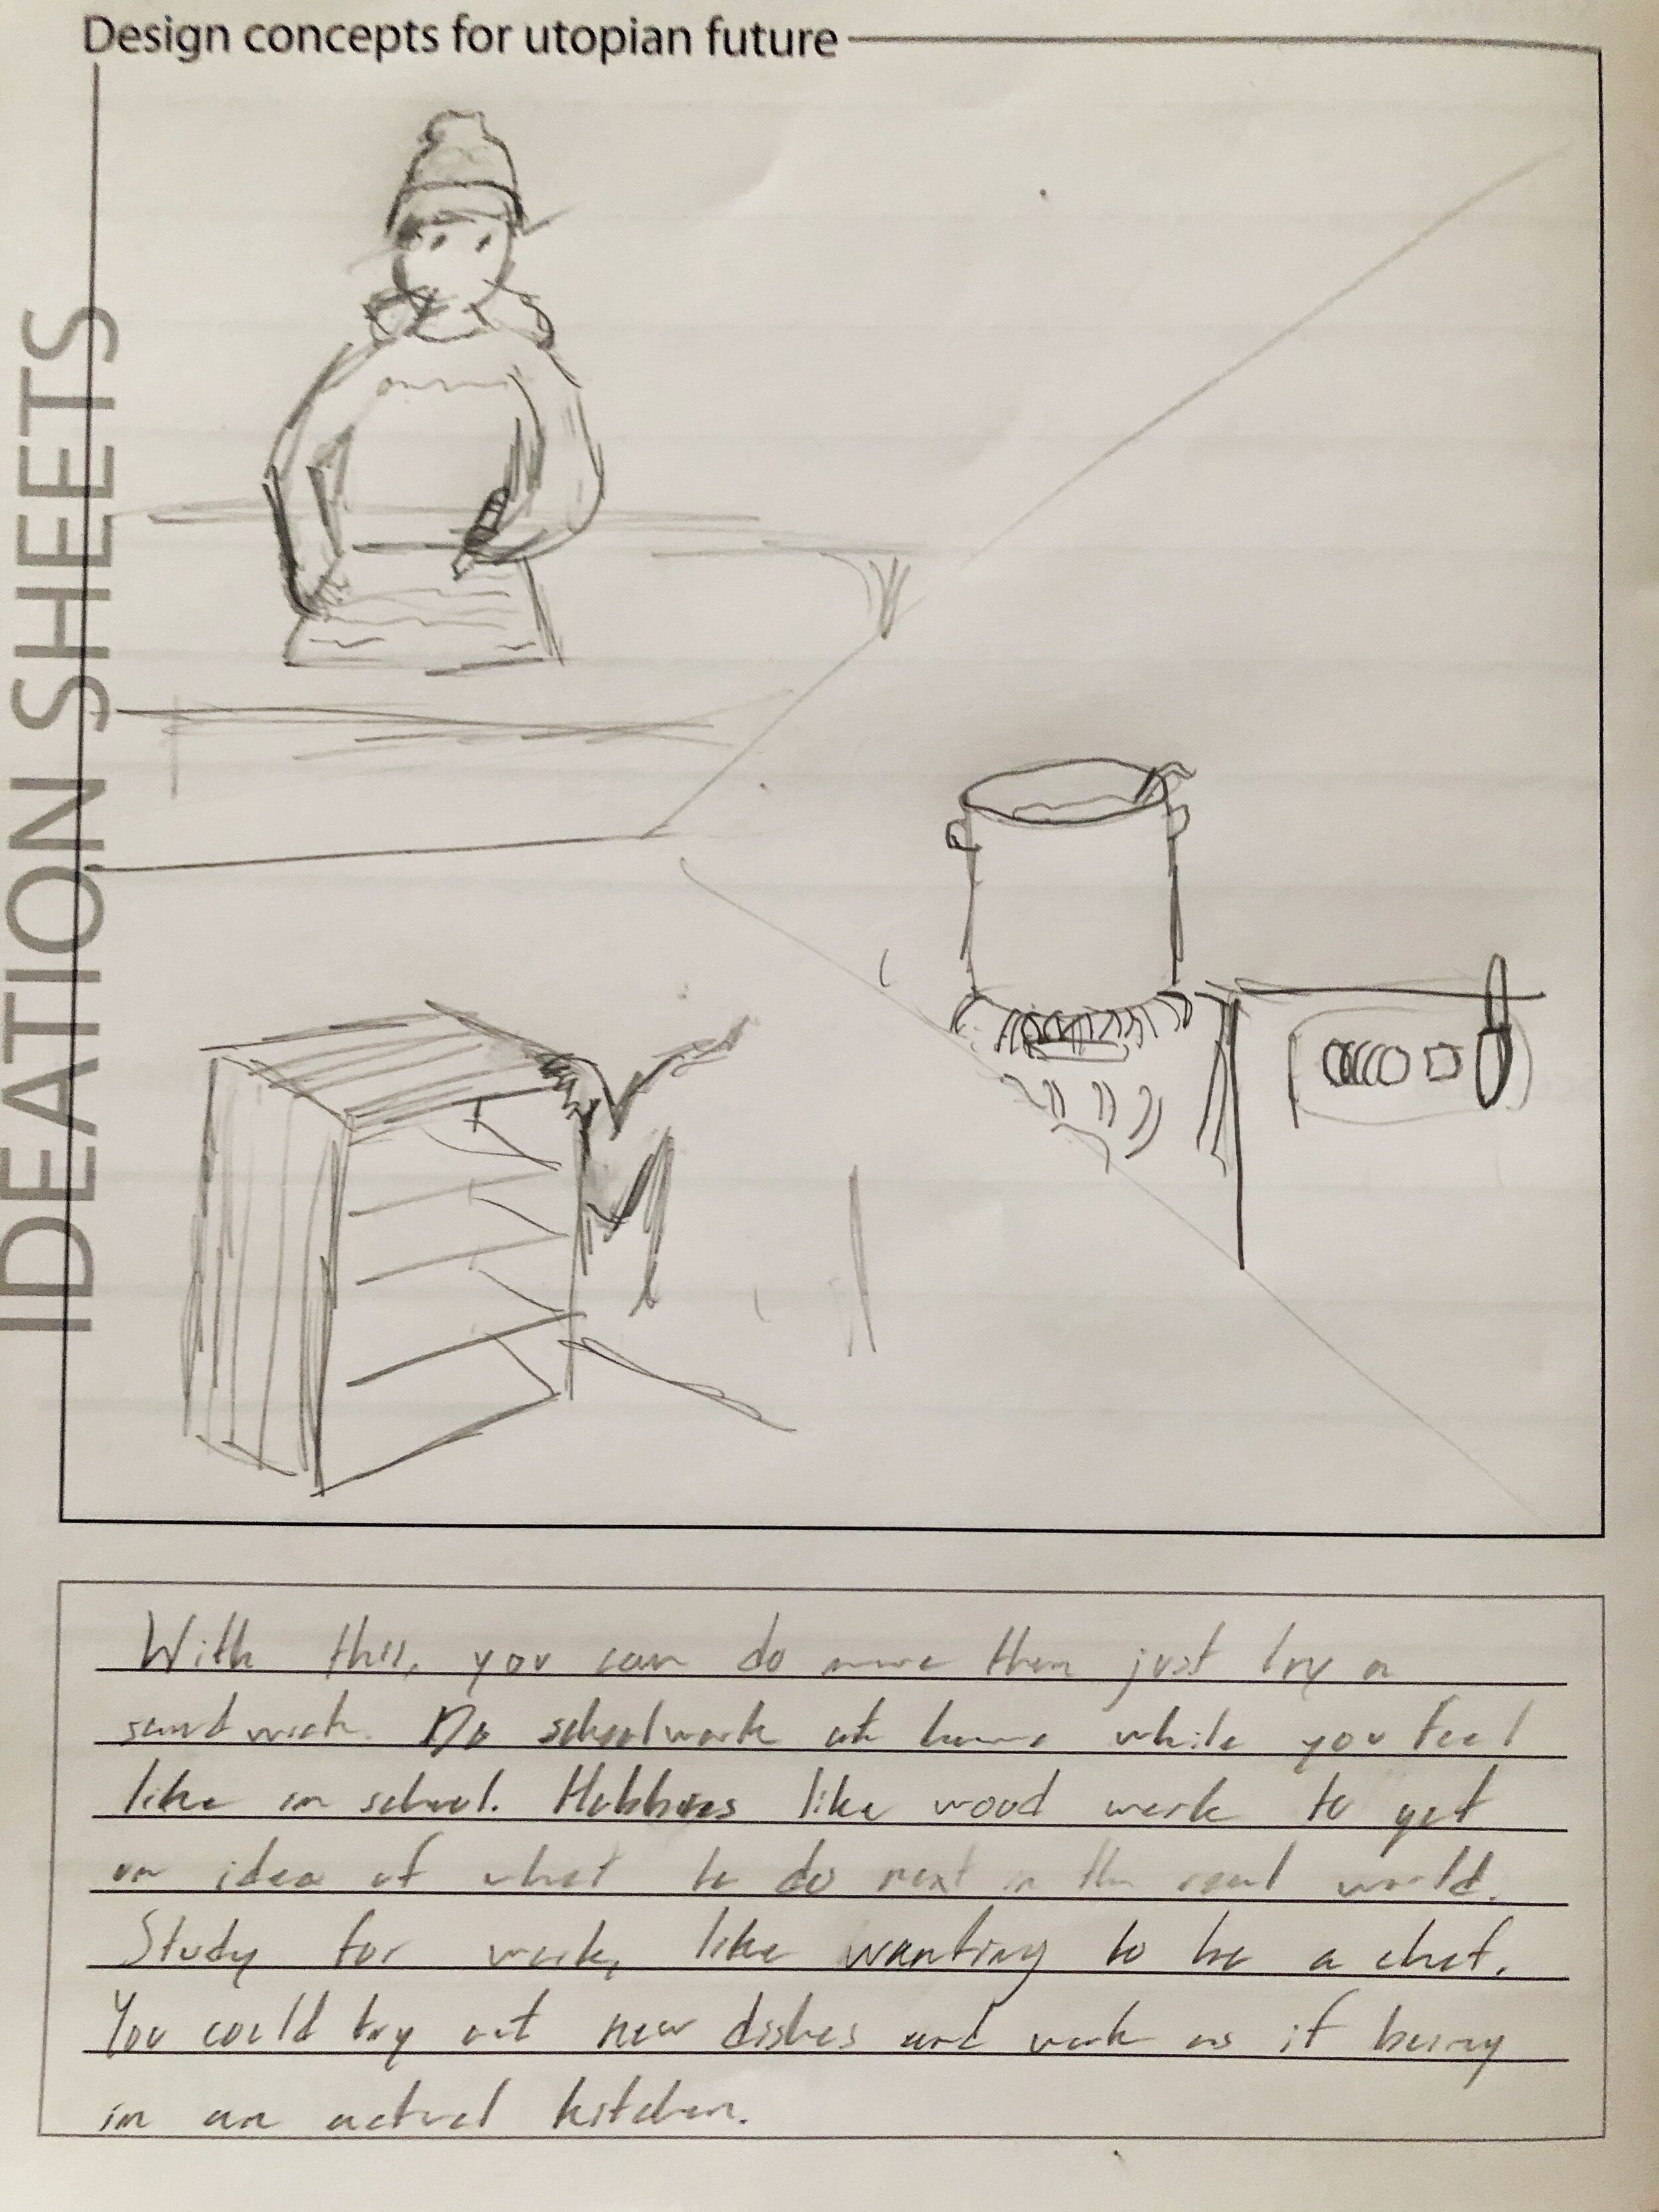 Design concepts for utopian future
IDEATION SHEETS
With this, you can do more then just try a
sandwich. Do schoolwork at home while you feel
like in school. Hobbies like wood work to get
an idea of what to do next in the real world.
Study for work, like wanting to be a chef.
You could try out new dishes and work as if being
in an actual kitchen.